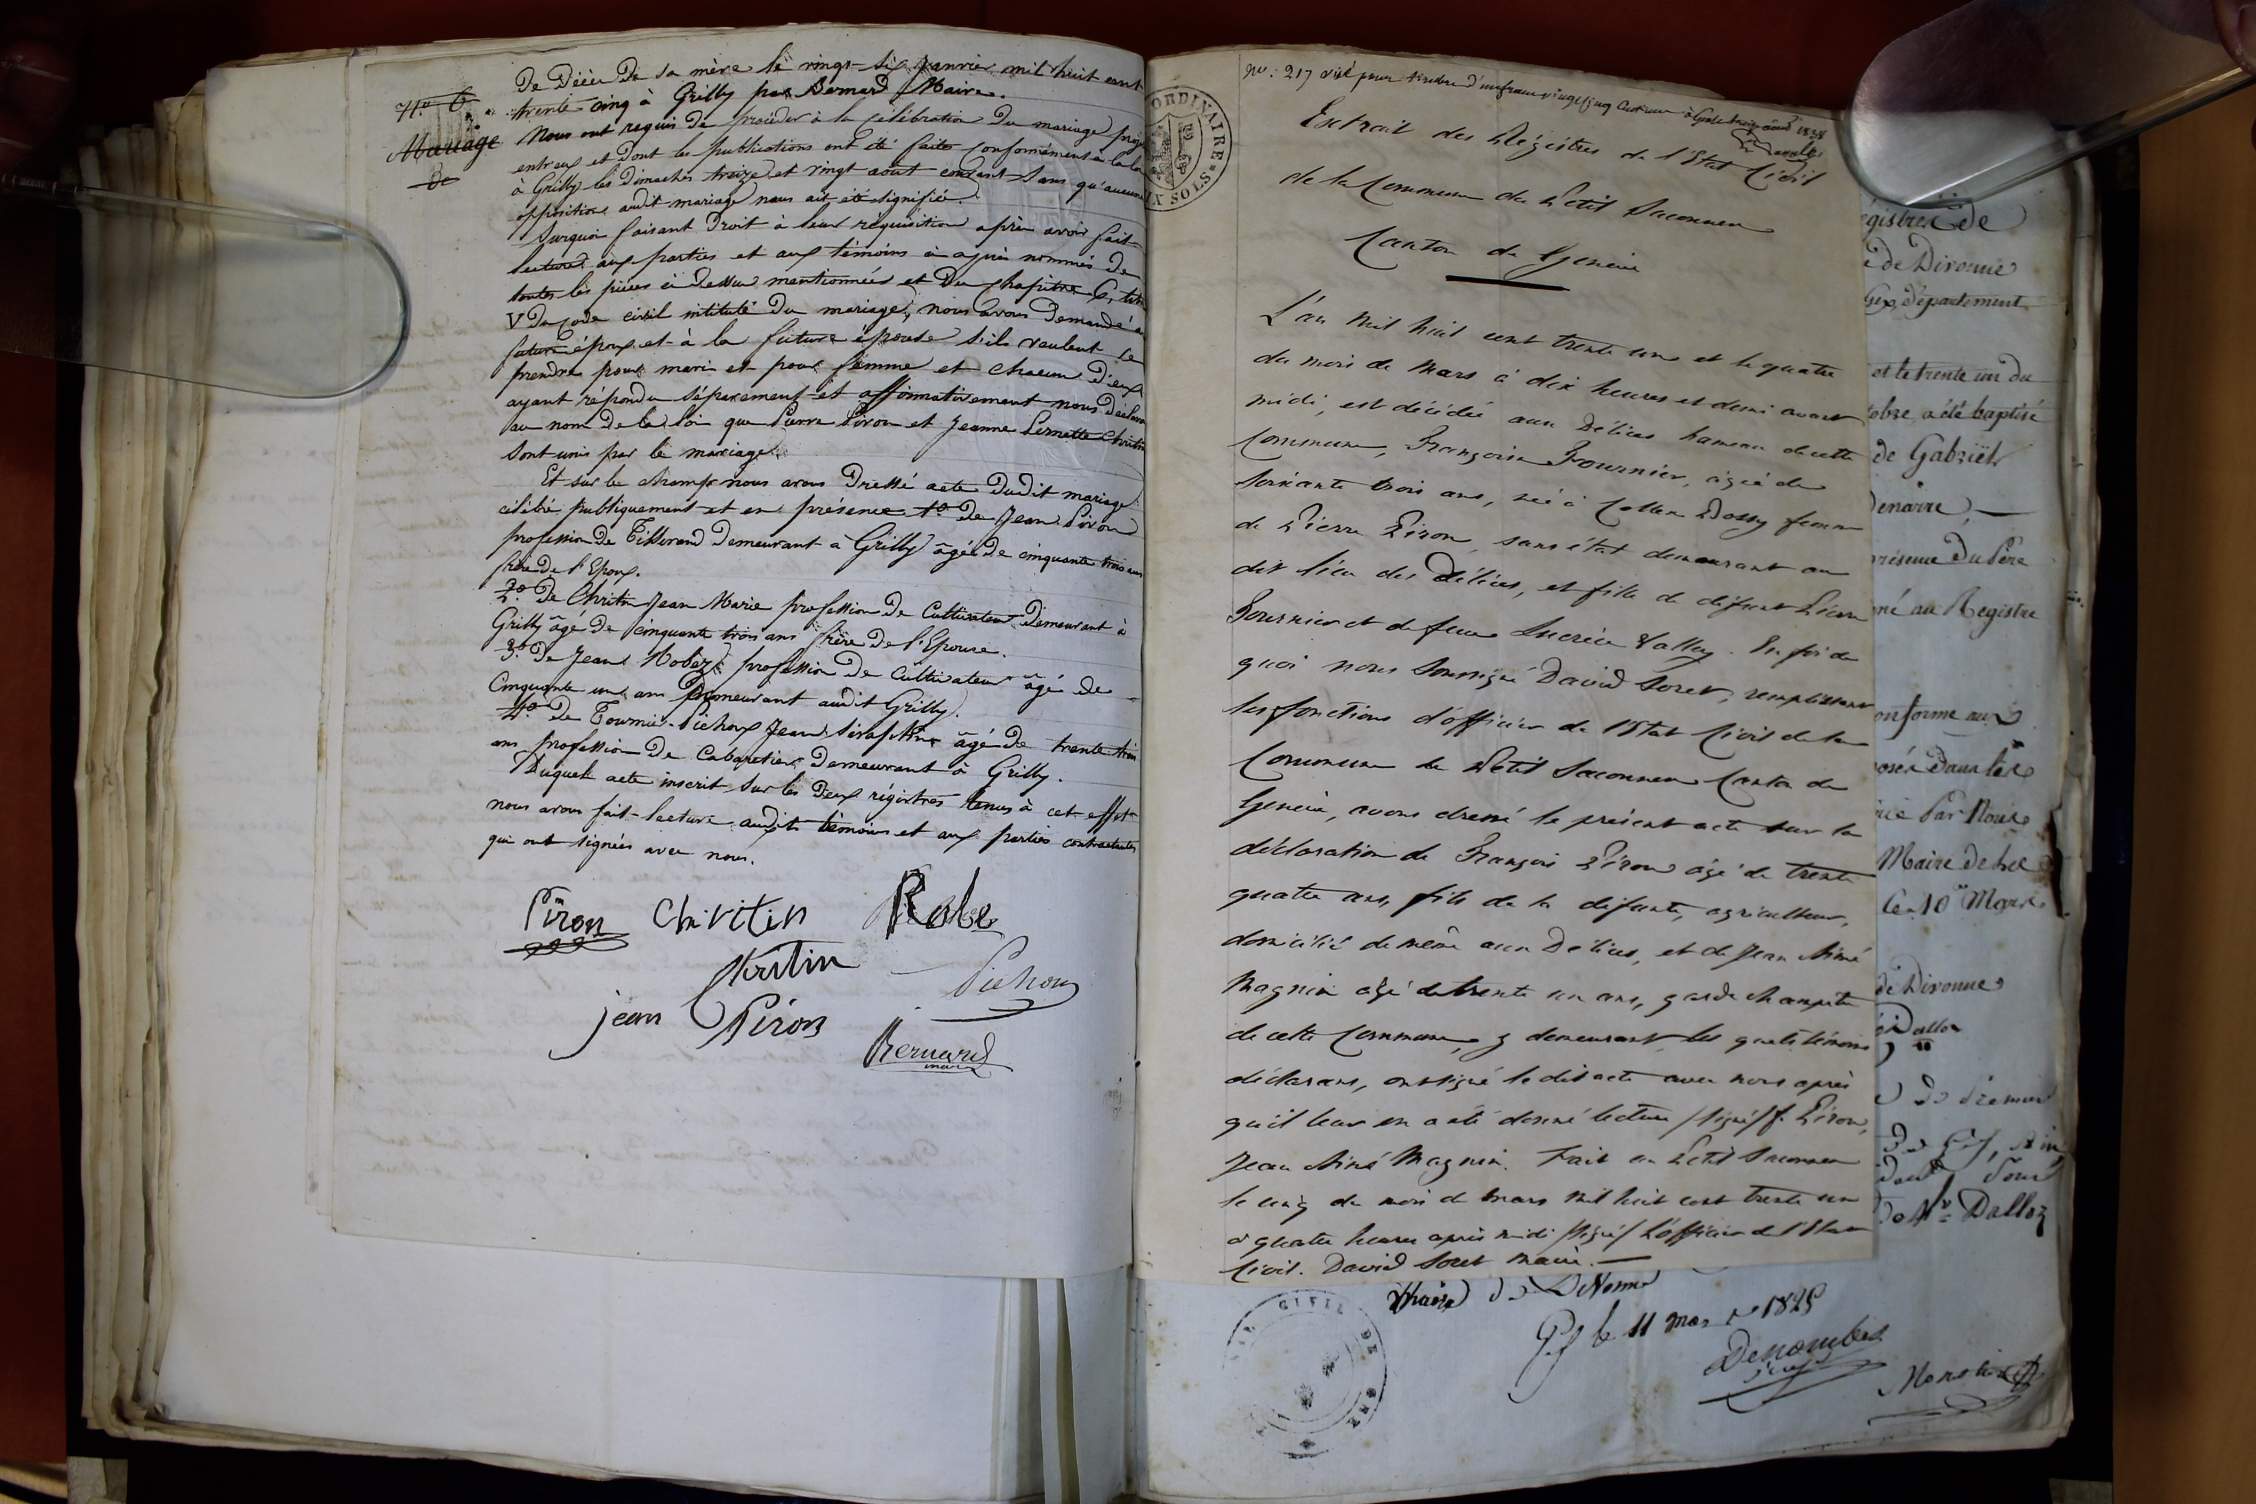 De Décès De sa mère le vingt-six Janvier mil huit cent
trente cinq à Grilly par Bernard Maire.
N.o 6
Mariage
de
Nous ont requis De procéder à la célébration Du mariage proj
entr'eux et Dont les publications ont été faites conformément à la loi
à Grilly les Dimanches treize et vingt aout courant sans qu'aucune
opposition audit mariage nous ait été signifiée.
Surquoi faisant Droit à leur réquisition après avoir fait
lecture aux parties et aux témoins ci après nommés De
toutes les pièces ci Dessus mentionnées et Du chapitre 6, titre
V Du Code civil intitulé Du mariage, nous avons demandé au
futur époux et à la future épouse s'ils veulent se
prendre pour mari et pour femme et chacun D'eux
ayant répondu séparement et affirmativement nous déclarons
au nom De la loi que Pierre Piron et Jeanne Pernette Christin
Sont unis par le mariage.
Et sur le champ nous avons Dressé acte Dudit mariage
célébré publiquement et en présence 1o De Jean Piron
profession De Tisserand Demeurant à Grilly âgé De cinquante trois ans
frère De l'Epoux.
2o De Christin Jean Marie profession De Cultivateur Demeurant à
Grilly âgé De cinquante trois ans frère De l'Epouse.
3o De Jean Robez profession De Cultivateur âgé De
Cinquante un ans Demeurant audit Grilly.
4o De Tournier-Pichoux Jean Séraphin âgé De trente trois
ans profession De Cabaretier Demeurant à Grilly.
Duquel acte inscrit sur les Deux régistres tenus à cet effet
nous avons fait lecture audits témoins et aux parties contractantes
qui ont signées avec nous.
Piron Christin Robe
Christin
Pichoux
jean Piron
Bernard
maire
ORDINAIRE
IX SOLS
No: 217 visé pour timbre d'un franc vingt cinq centimes à Gex le 1838
Extrait des Régistres de l'Etat Civil
de la Commune du Petit Saconnex
Canton de Genève
L'an mil huit cent trente un et le quatre
du mois de Mars à dix heures et demi avant
midi, est décédée aux Délices hameau de cette
Commune, Françoise Fournier, agée de
soixante trois ans, née à Collex Bossy femme
de Pierre Piron, sans état demeurant au
dit lieu des Délices, et fille de défunt Pierre
Fournier et de feue Lucrèce Vallez. En foi de
quoi nous soussigné David Soret, remplissant
les fonctions d'officier de l'Etat Civil de la
Commune du Petit Saconnex Canton de
Genève, avons dressé le présent acte sur la
déclaration de François Piron agé de trente
quatre ans, fils de la défunte, agriculteur,
domicilié de même aux Délices, et de Jean Aimé
Magnin agé de trente un ans, garde champêtre
de cette Commune, y demeurant, les quels témoins
déclarans, ont signé le dit acte avec nous après
qu'il leur en a été donné lecture /signé/ f. Piron,
Jean Aimé Magnin. Fait au Petit Saconnex
le cinq du mois de Mars mil huit cent trente un
à quatre heures après midi /signé/ L'officier de l'Etat
Civil. David Soret Maire.
egistres de
e de Divonne
Gex, département
et le trente un du
obre a été baptisé
de Gabriël
Denarre,
présence Du Père
né au Registre
onforme aux
posés Dans les
Par Nous
Maire de
Le 10 Mars
de Divonne
Dalloz
De Gex, Ain
Pour
De Mr Dalloz
Maire De Divonne
CIVIL DE GEX
Gex le 11 Mars 1825